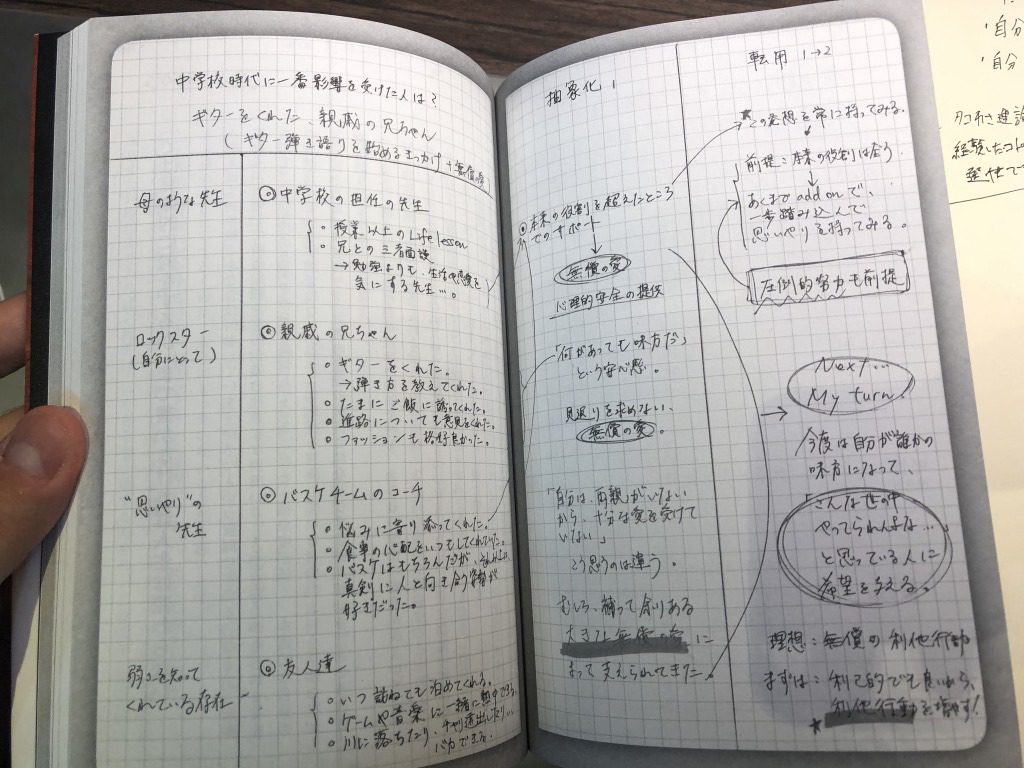 中学校時代に一番影響を受けた人は?
ギターをくれた、親戚の兄ちゃん
(ギター弾き語りを始めるきっかけ+無償の愛
母のような先生
◎中学校の担任の先生
○授業以上のLife lesson
○兄との三者面談
→勉強よりも、生活や態度を
気にする先生…。
ロックスター
(自分にとって)
◎親戚の兄ちゃん
○ギターをくれた。
→弾き方を教えてくれた。
○たまにご飯に誘ってくれた。
○進路についても意見をくれた。
○ファッションも格好良かった。
"思いやり"の
先生
◎バスケチームのコーチ
○悩みに寄り添ってくれた。
○食事の心配をいつもしてくれていた。
○バスケはもちろんだが、
真剣に人と向き合う姿勢が
好きだった。
弱さを知って
くれている存在
◎友人達
○いつ訪ねても泊めてくれる。
○ゲームや音楽に一緒に熱中できる。
○川に落ちたり、
バカできる。
抽象化 1
◎本来の役割を超えたところ
でのサポート
無償の愛
心理的安全の提供
「何があっても味方だ」
という安心感。
見返りを求めない、
無償の愛。
「自分は、両親がいない
から、十分な愛を受けて
いない」
こう思うのは違う。
むしろ、補って余りある
大きな無償の愛に
よって支えられてきた。
転用 1→2
この発想を常に持ってみる。
前提:本来の役割は全う
あくまで add on で、
一歩踏み込んで
思いやりを持ってみる。
圧倒的努力も前提
Next...
My turn.
今度は自分が誰かの
味方になって、
「こんな世の中
やってられんよな…
と思っている人に
希望を与える。
理想:無償の利他行動
まずは:利己的でも良いから、
★利他行動を増やす!
・自分
・自分
経験したコト